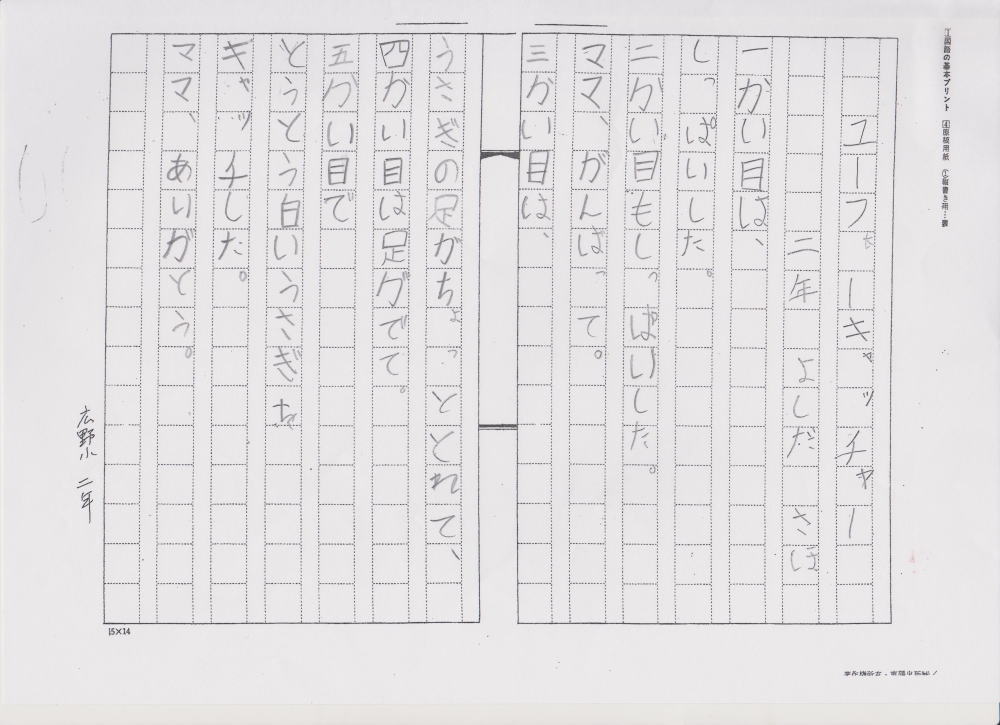 工国語の基本プリント ④原稿用紙 ①縦書き用…裏
ユーフォーキャッチャー
二年 よしだ さほ
一かい目は、
しっぱいした。
二かい目もしっぱいした。
ママ、がんばって。
三かい目は、
うさぎの足がちょっととれて、
四かい目は足がでて。
五かい目で
とうとう白いうさぎを
ギャッチした。
ママ、ありがとう。
広野小 二年
15×14